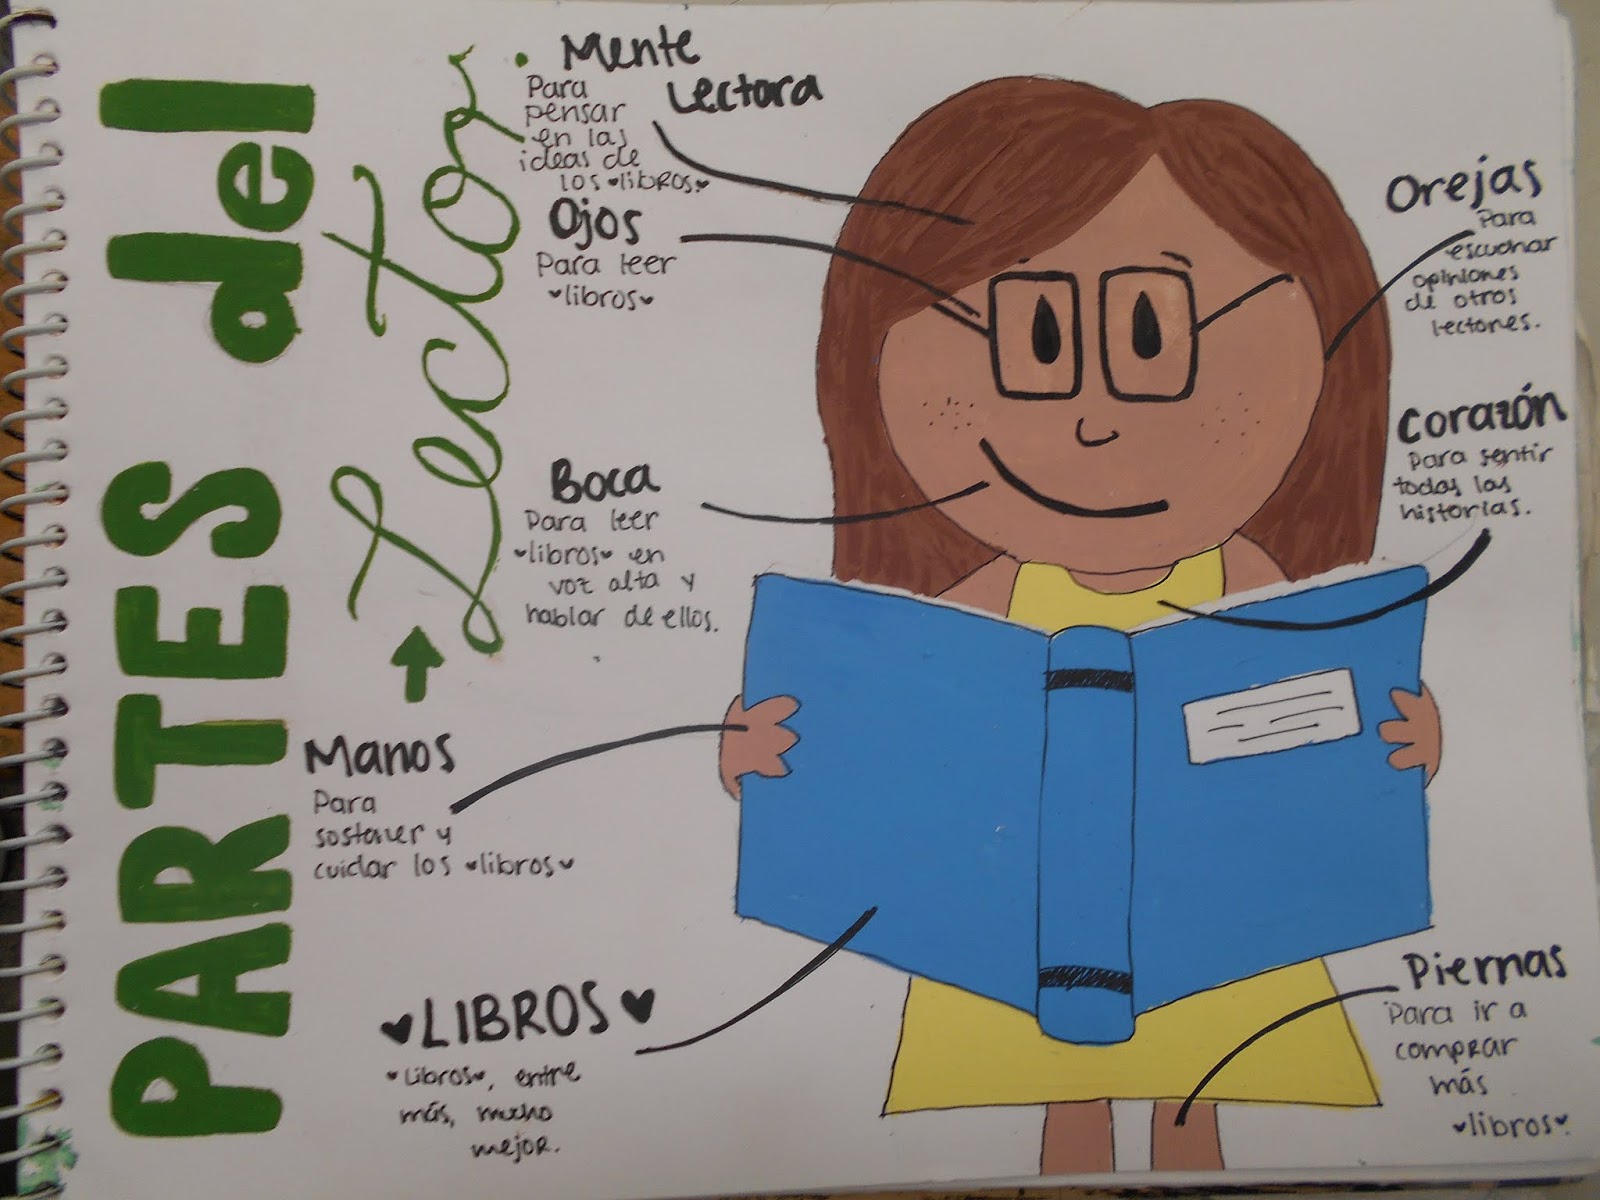 PARTES del
Lector.
Mente
Lectora
Para
pensar
en las
ideas de
los libros.
Ojos
Para leer
libros
Boca
Para leer
libros en
voz alta y
hablar de ellos.
Manos
Para
sostener y
cuidar los libros
LIBROS
Libros, entre
más, mucho
mejor.
Orejas
Para
escuchar
opiniones
de otros
lectores.
Corazón
Para sentir
todas las
historias.
Piernas
Para ir a
comprar
más
libros.